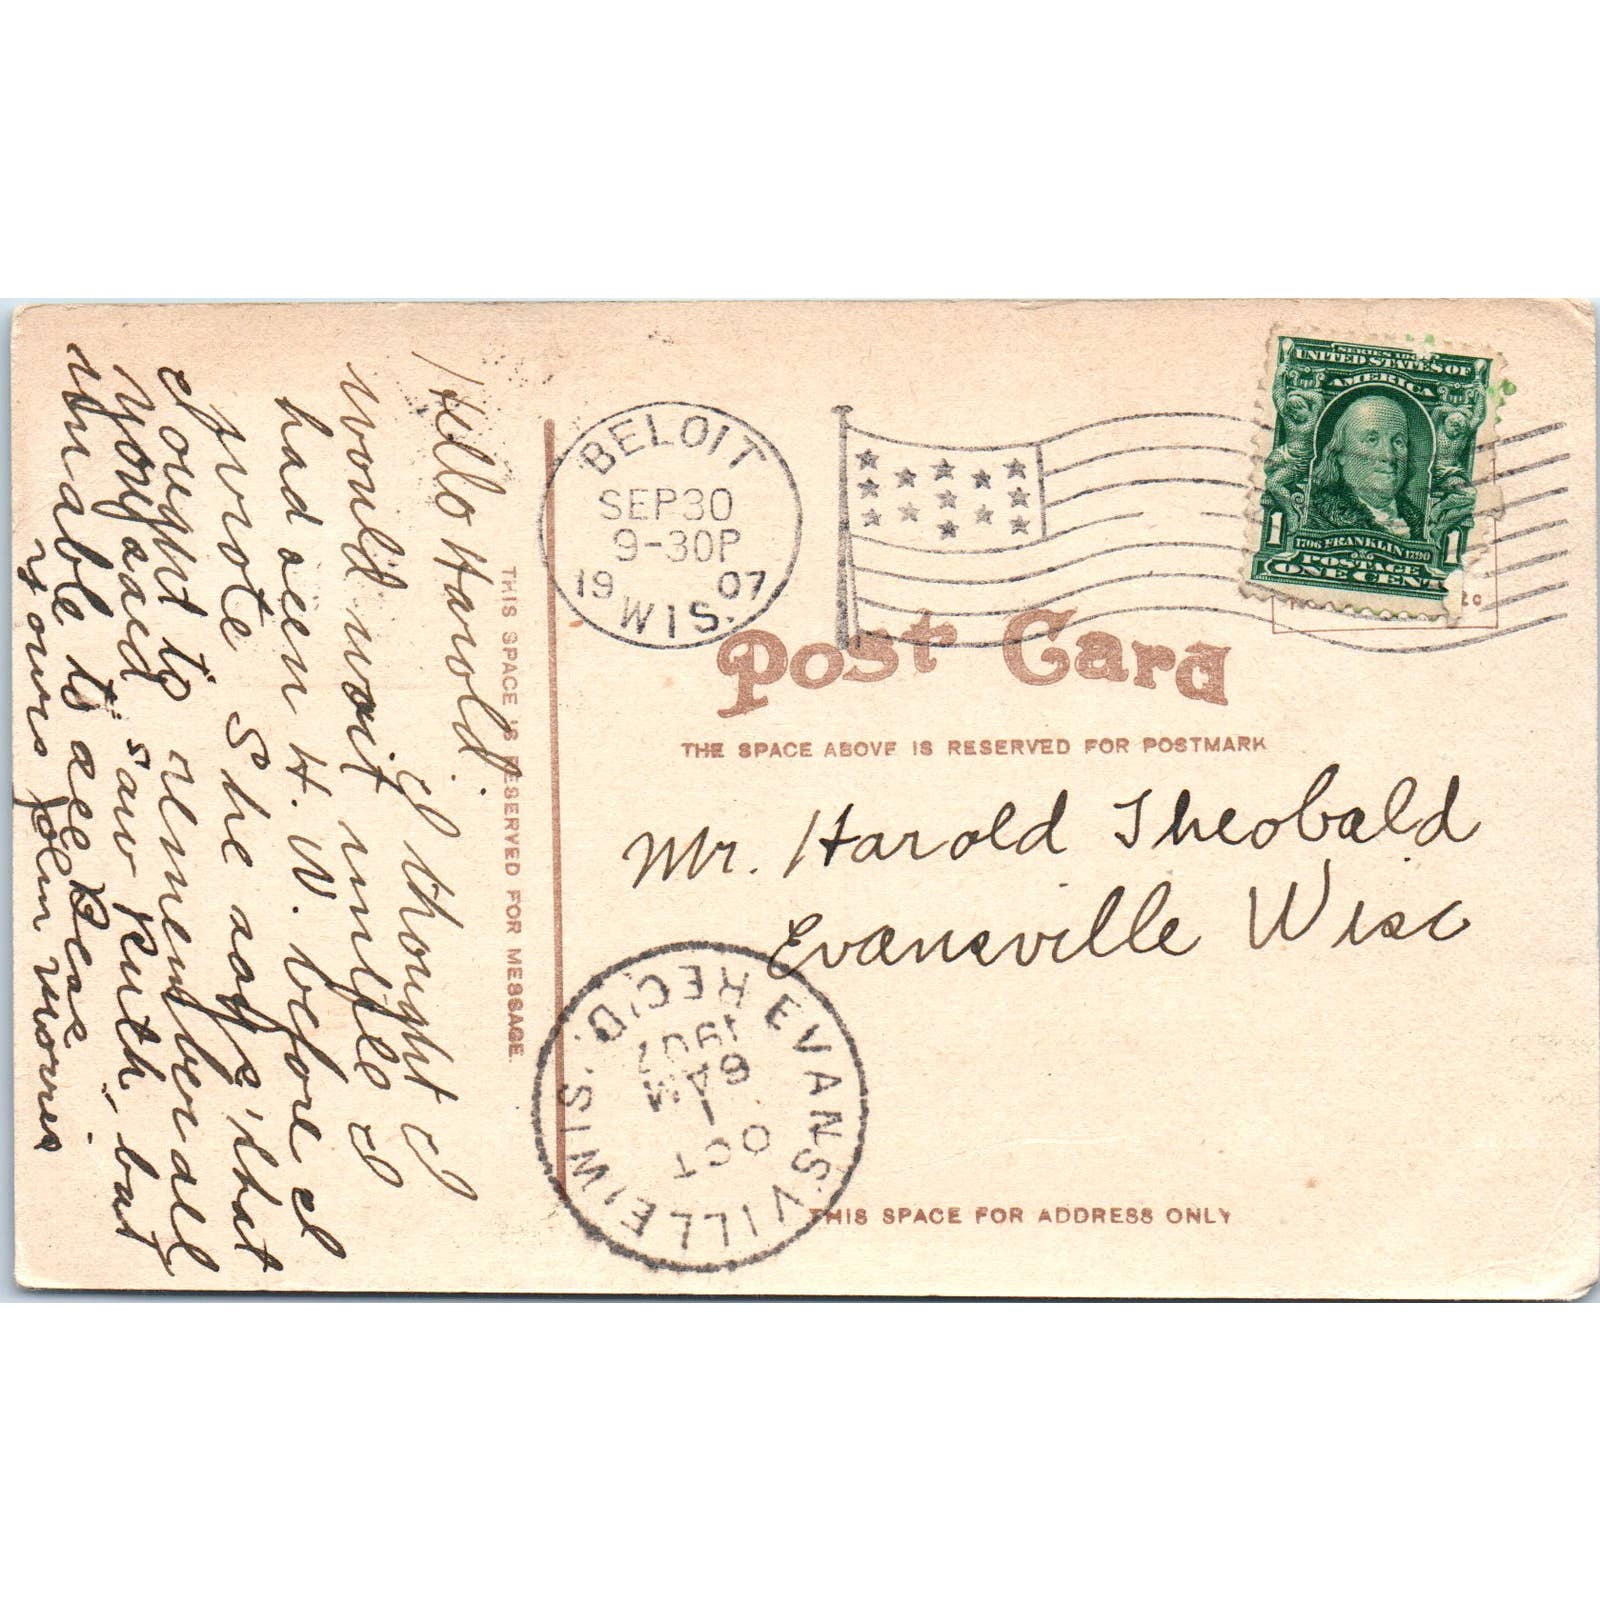 Hello Harold.
I thought I
would wait untill I
had seen H. W. before I
wrote She says that
I ought to remember all
you said saw Ruth but
unable to see
Yours John Morris
THIS SPACE IS RESERVED FOR MESSAGE
BELOIT
SEP 30
9-30P
19 07
WIS.
SERIES 1902
UNITED STATES OF
AMERICA
1 1
1706 FRANKLIN 1790
POSTAGE
ONE CENT
Post Card
THE SPACE ABOVE IS RESERVED FOR POSTMARK
Mr. Harold Theobald
Evansville Wisc
EVANSVILLE WIS. REC'D.
OCT
1
6 AM
1907
THIS SPACE FOR ADDRESS ONLY